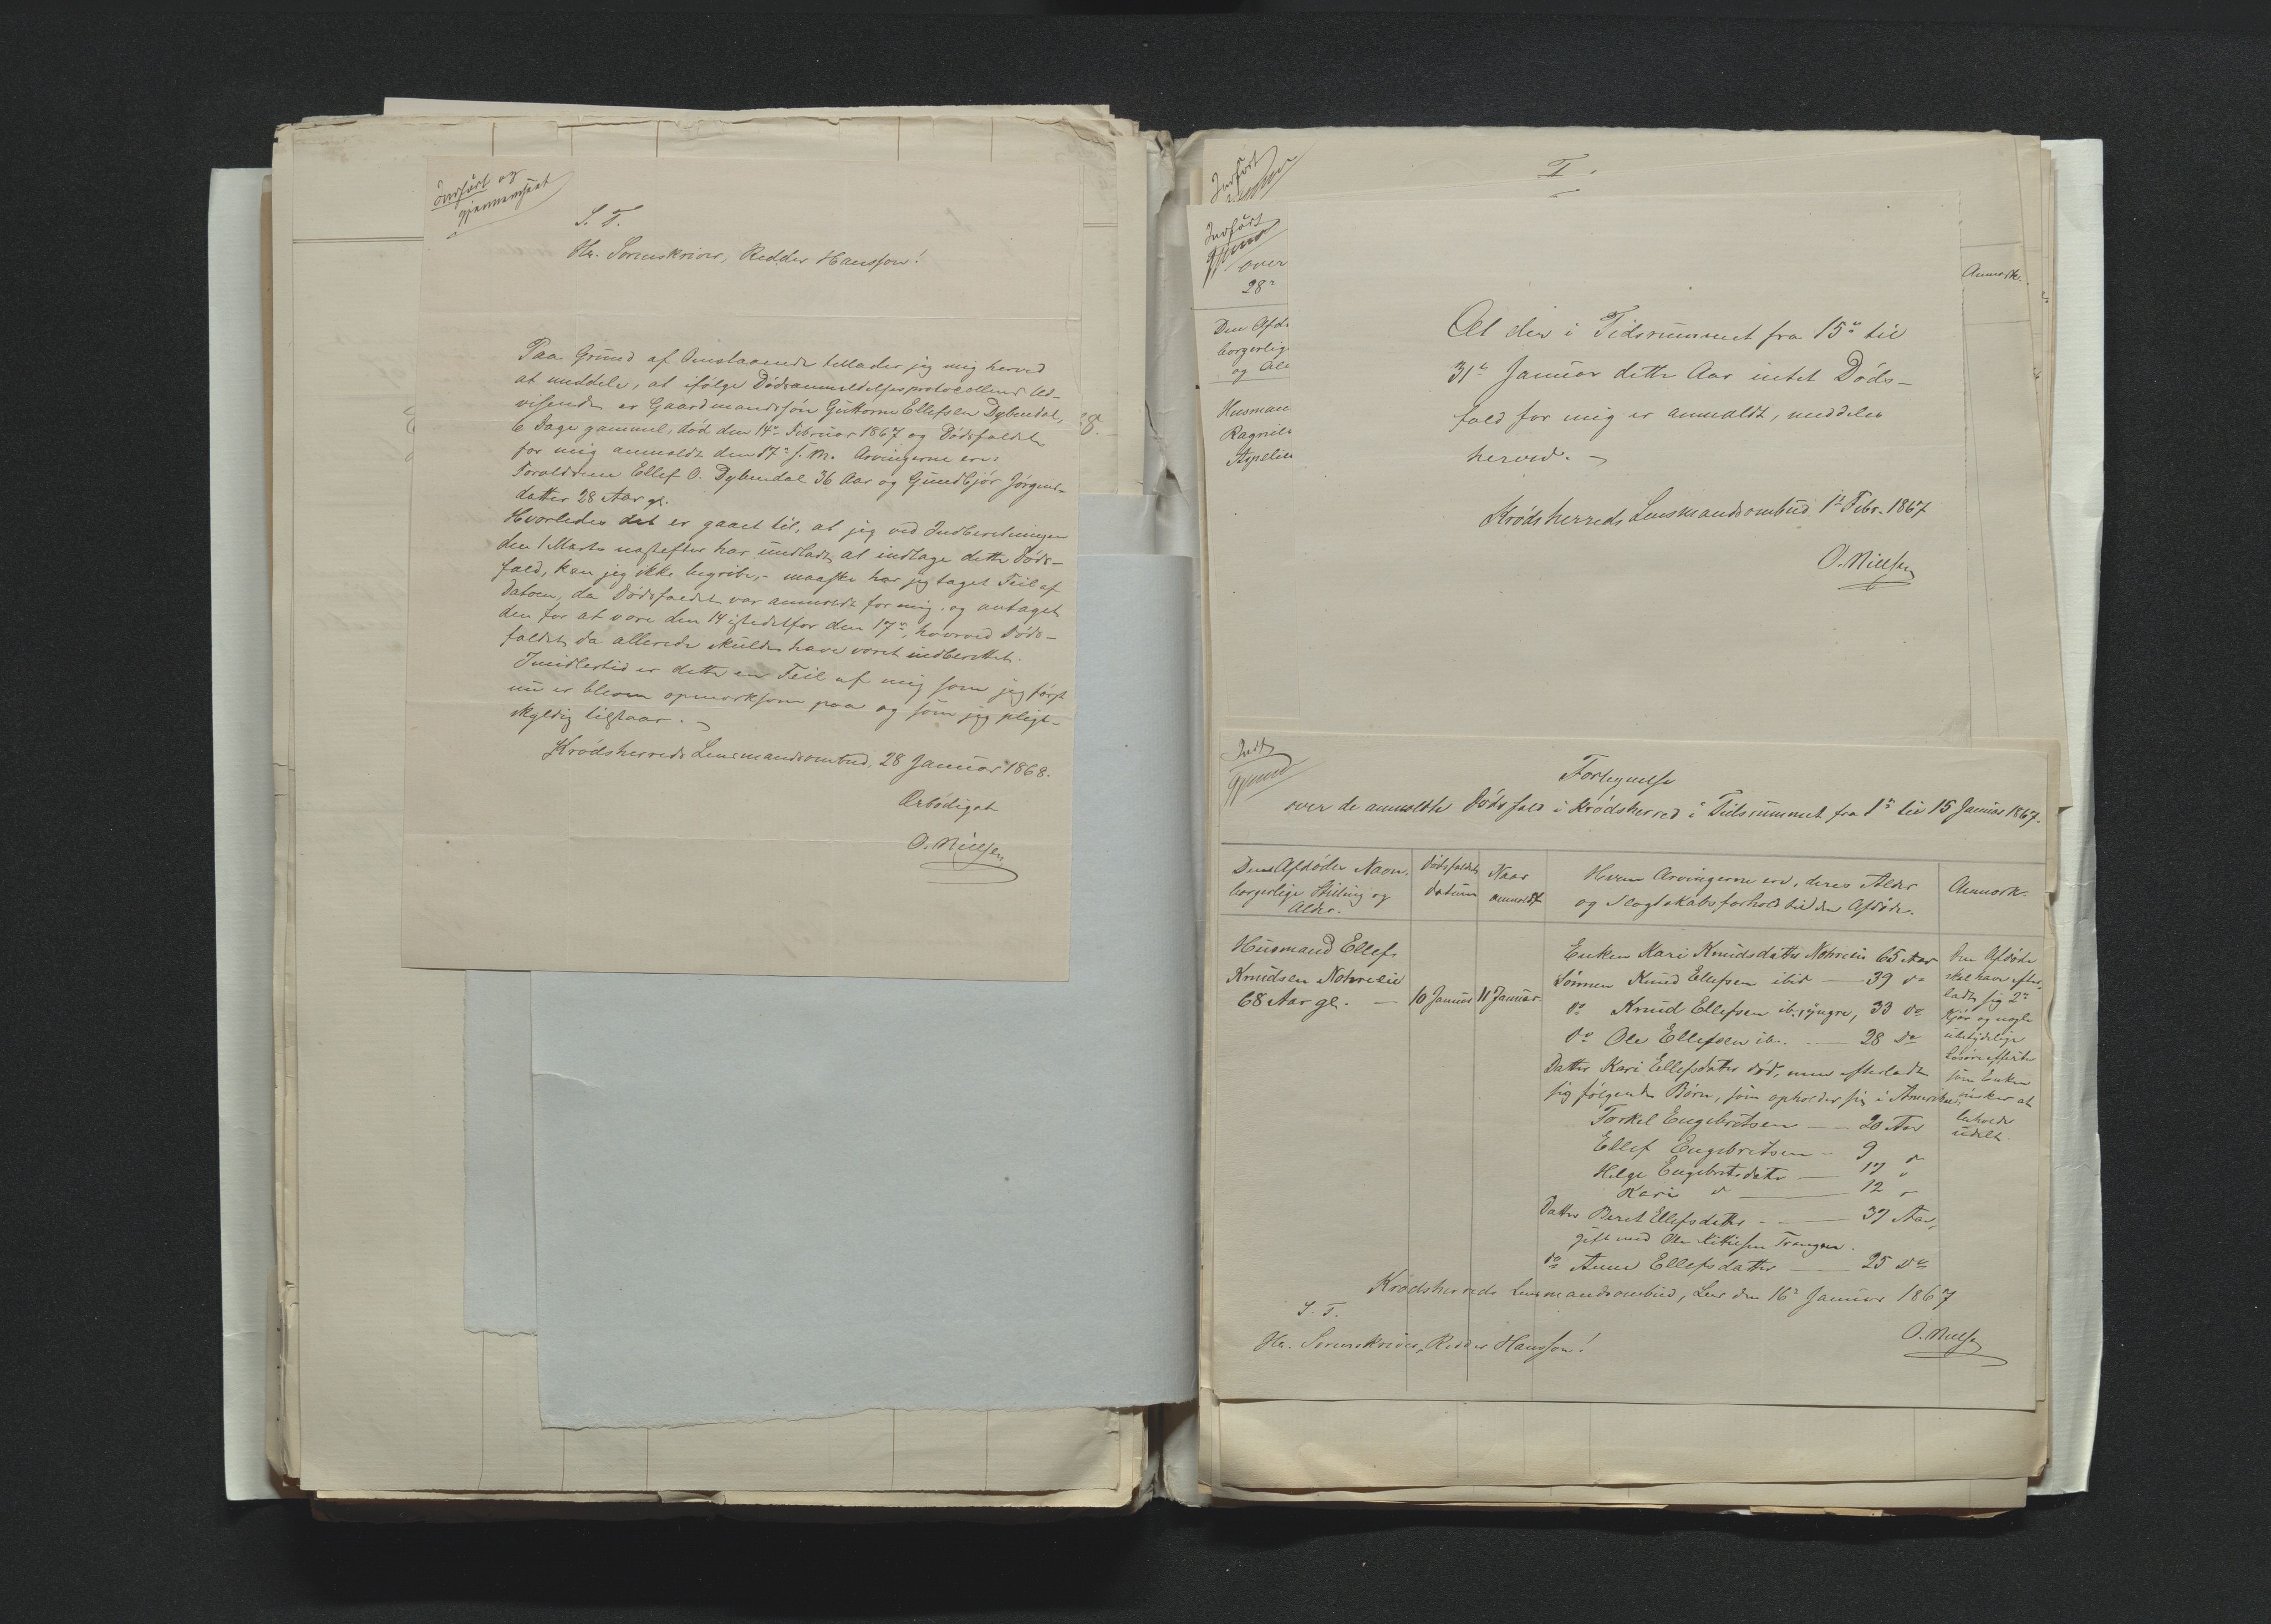 Indført og
gjennemseet
S. T.
Hr. Sorenskriver, Ridder Hansson!
Paa Grund af Omstaaende tillader jeg mig herved
at meddele, at ifølge Dødsanmeldelsesprotocollens Ud-
visende er Gaardmandssøn Guttorm Ellefsen Dybendal,
6 Dage gammel, død den 14de Februar 1867 og Dødsfaldet
for mig anmeldt den 17de s. M. Arvingerne ere:
Forældrene Ellef O. Dybendal 36 Aar og Gundbjør Jørgens-
datter 28 Aar gl.
Hvorledes det er gaaet til, at jeg ved Indberetningen
den 1 Marts næstefter har undladt at indtage dette Døds-
fald, kan jeg ikke begribe, - maaske har jeg taget Feil af
Datoen, da Dødsfaldet var anmeldt for mig, og antaget
den for at være den 14 istedetfor den 17de, hvorved Døds-
faldet da allerede skulde have været indberettet.
Imidlertid er dette en Feil af mig som jeg først
nu er bleven opmærksom paa og som jeg pligt-
skyldig tilstaar.
Krødsherreds Lensmandsombud, 28 Januar 1868.
Ærbødigst
O. Nielsen
8.
Indført
I.
Indført
over
28de
Den Afdø
borgerlig
og Ald
Husman
Ragnild
Anmærk.
At der i Tidsrummet fra 15de til
31te Januar dette Aar intet Døds-
fald for mig er anmeldt, meddeles
herved.
Krødsherreds Lensmandsombud 1ste Febr. 1867
O. Nielsen
Indf
Fortegnelse
over de anmeldte Dødsfald i Krødsherred i Tidsrummet fra 1ste til 15 Januar 1867.
Den Afdødes Navn,
borgerlige Stilling og
Alder.
Dødsfaldets
Datum
Naar
anmeldt
Hvem Arvingerne ere, deres Alder
og Slægtskabsforhold til den Afdøde.
Anmærk.
Husmand Ellef
Knudsen Nohreeie
68 Aar gl. — 10 Januar 11 Januar.
Enken Kari Knudsdatter Nohreeie 65 Aar
Sønnen Knud Ellefsen ibid — 39 do
do Knud Ellefsen ib., yngre, 33 do
do Ole Ellefsen ib. — 28 do
Datter Kari Ellefsdatter død, men efterladt
sig følgende Børn, som opholder sig i Amerika:
Torkel Engebretsen — 20 Aar
Ellef Engebretsen — 9 "
Helge Engebretsdatter — 17 "
Kari " — 12 "
Datter Beret Ellefsdatter — 37 Aar,
gift med Ole Kittilsen Trangen.
do Anne Ellefsdatter — 25 do
Den Afdøde
skal have efter-
ladt sig 2de
Kjør og nogle
ubetydelige
Løsøreeffekter
som Enken
ønsker at
beholde
udelt.
Krødsherreds Lensmandsombud, Lere den 16de Januar 1867
O. Nielsen
S. T.
Hr. Sorenskriver, Ridder Hansson!